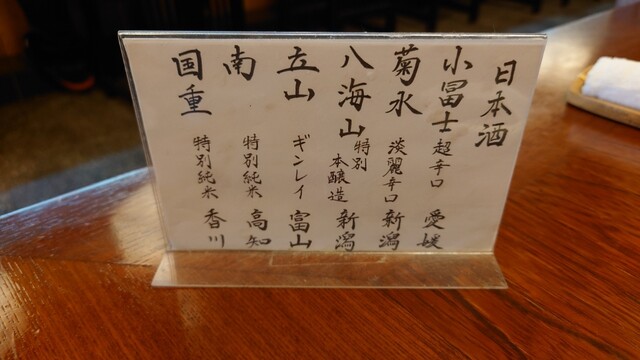 日本酒
小冨士 超辛口 愛媛
菊水 淡麗辛口 新潟
八海山 特別本醸造 新潟
立山 ギンレイ 富山
南 特別純米 高知
国重 特別純米 香川